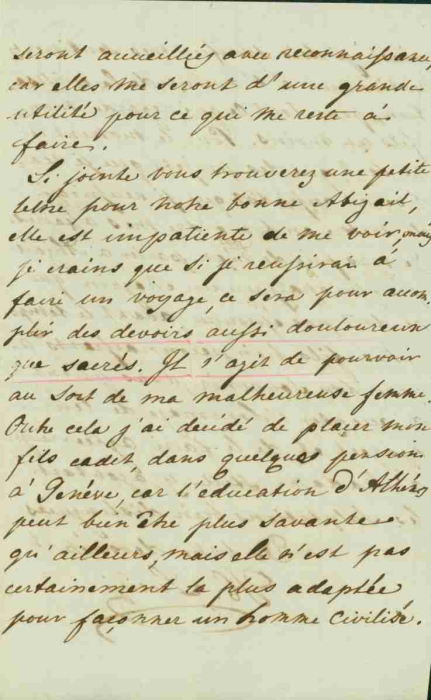 seront accueilliés avec reconnaissance,
car elles me seront d'une grande
utilité pour ce qui me reste à
faire.
Ci jointe vous trouverez une petite
lettre pour notre bonne Abigail,
elle est impatiente de me voir, mais
je crains que si je reussirai à
faire un voyage, ce sera pour accom
plir des devoirs aussi douloureux
que sacrés. Il s'agit de pourvoir
au sort de ma malheureuse femme.
Outre cela j'ai décidé de placer mon
fils cadet, dans quelques pension
à Genéve, car l'education d'Athénes
peut bien être plus savante
qu'ailleurs, mais elle n'est pas
certainement la plus adaptée
pour façonner un homme civilisé.